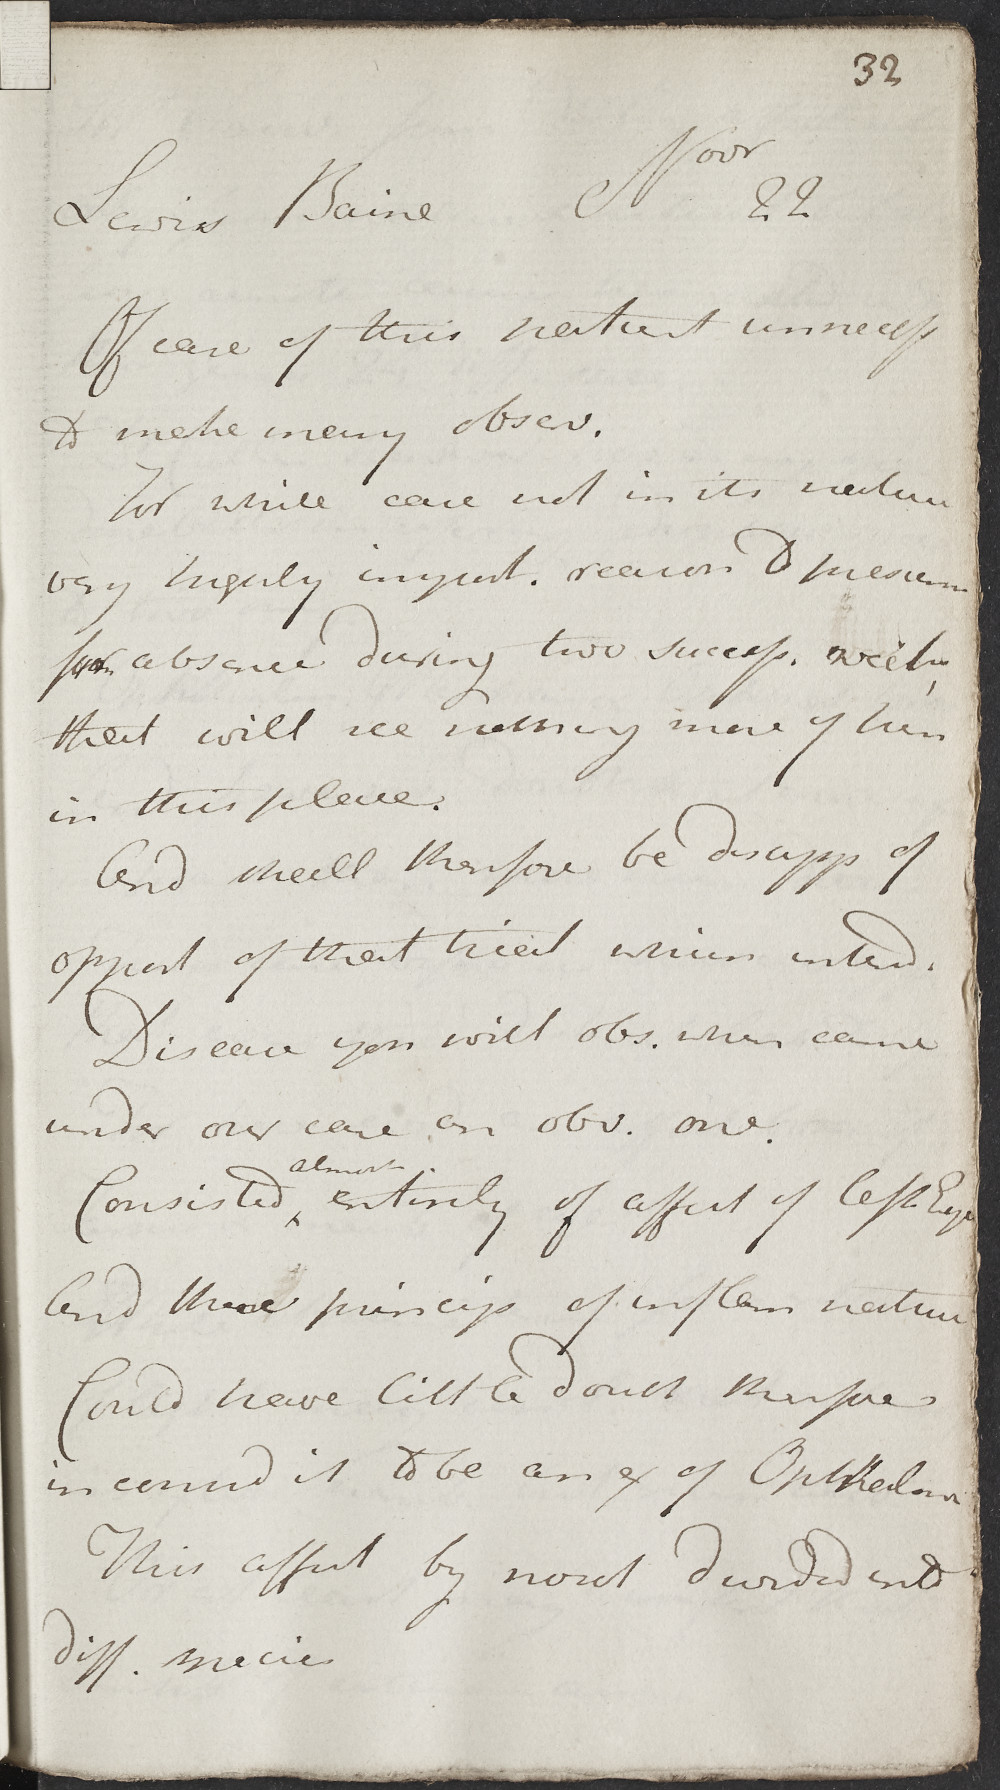 32
Novr
Lewis Baine 22
Of case of this nature unnecess
to make many observ.
For while case not in its nature
very highly import. reason to presume
from absence during two success. weeks,
that will see nothing more of him
in this place.
And shall therefore be disapp of
opport of that trial which intend.
Disease you will obs. when came
under our care an obv. one.
almost
Consisted ‸ entirely of affect of left Eye
And these princip of inflam nature
Could have little doubt therefore
in consid it to be an ex of Opthalmia
This affect by nosol divided into
diff. species